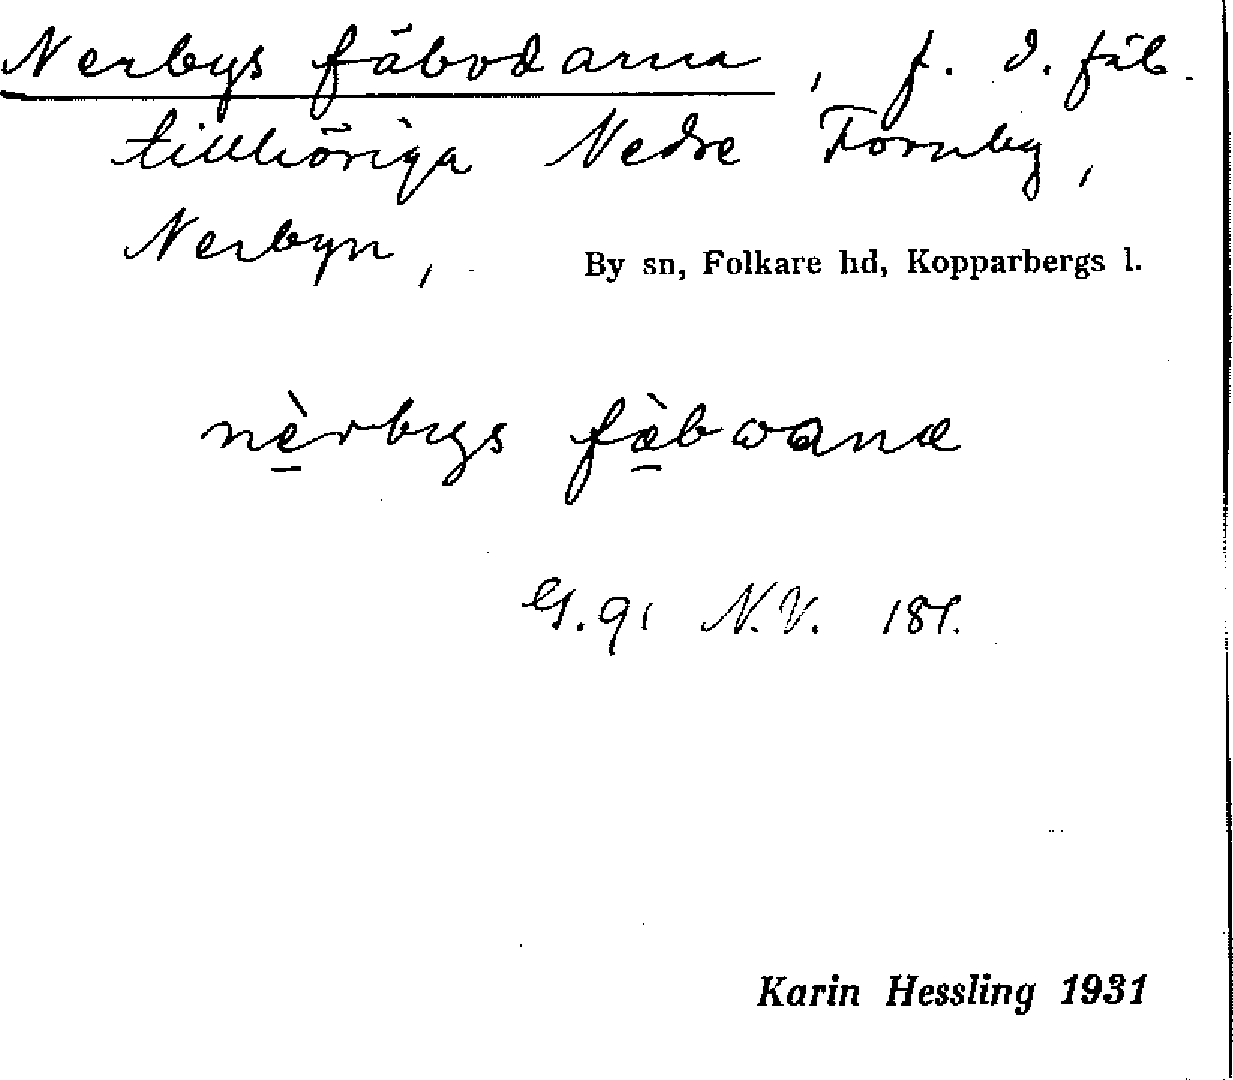 Nerbys fäbodarna, f. d. fäb.
tillhöriga Nedre Fornby,
Nerbyn,
By sn, Folkare hd, Kopparbergs l.
nè̱rbygs fæ̱̀bωɑnɑ
G. 91 N.V. 181.
Karin Hessling 1931